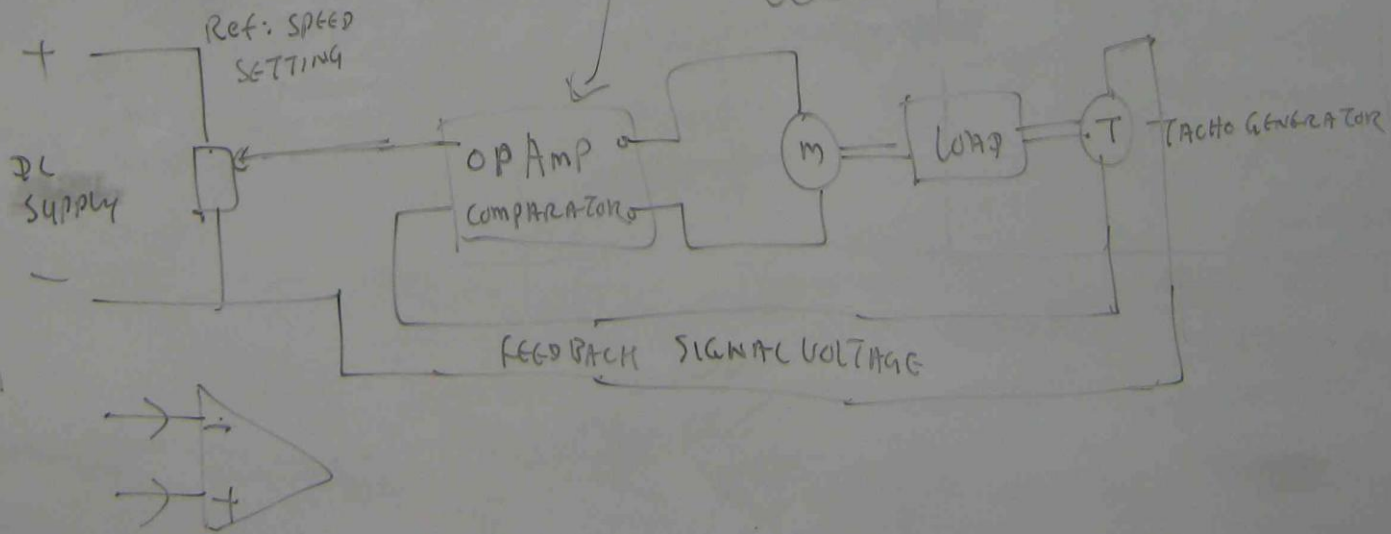 Ref: SPEED
SETTING
+
DC
SUPPLY
-
OP AMP
COMPARATOR
M
LOAD
T
TACHO GENERATOR
FEEDBACH SIGNAL VOLTAGE
-
+